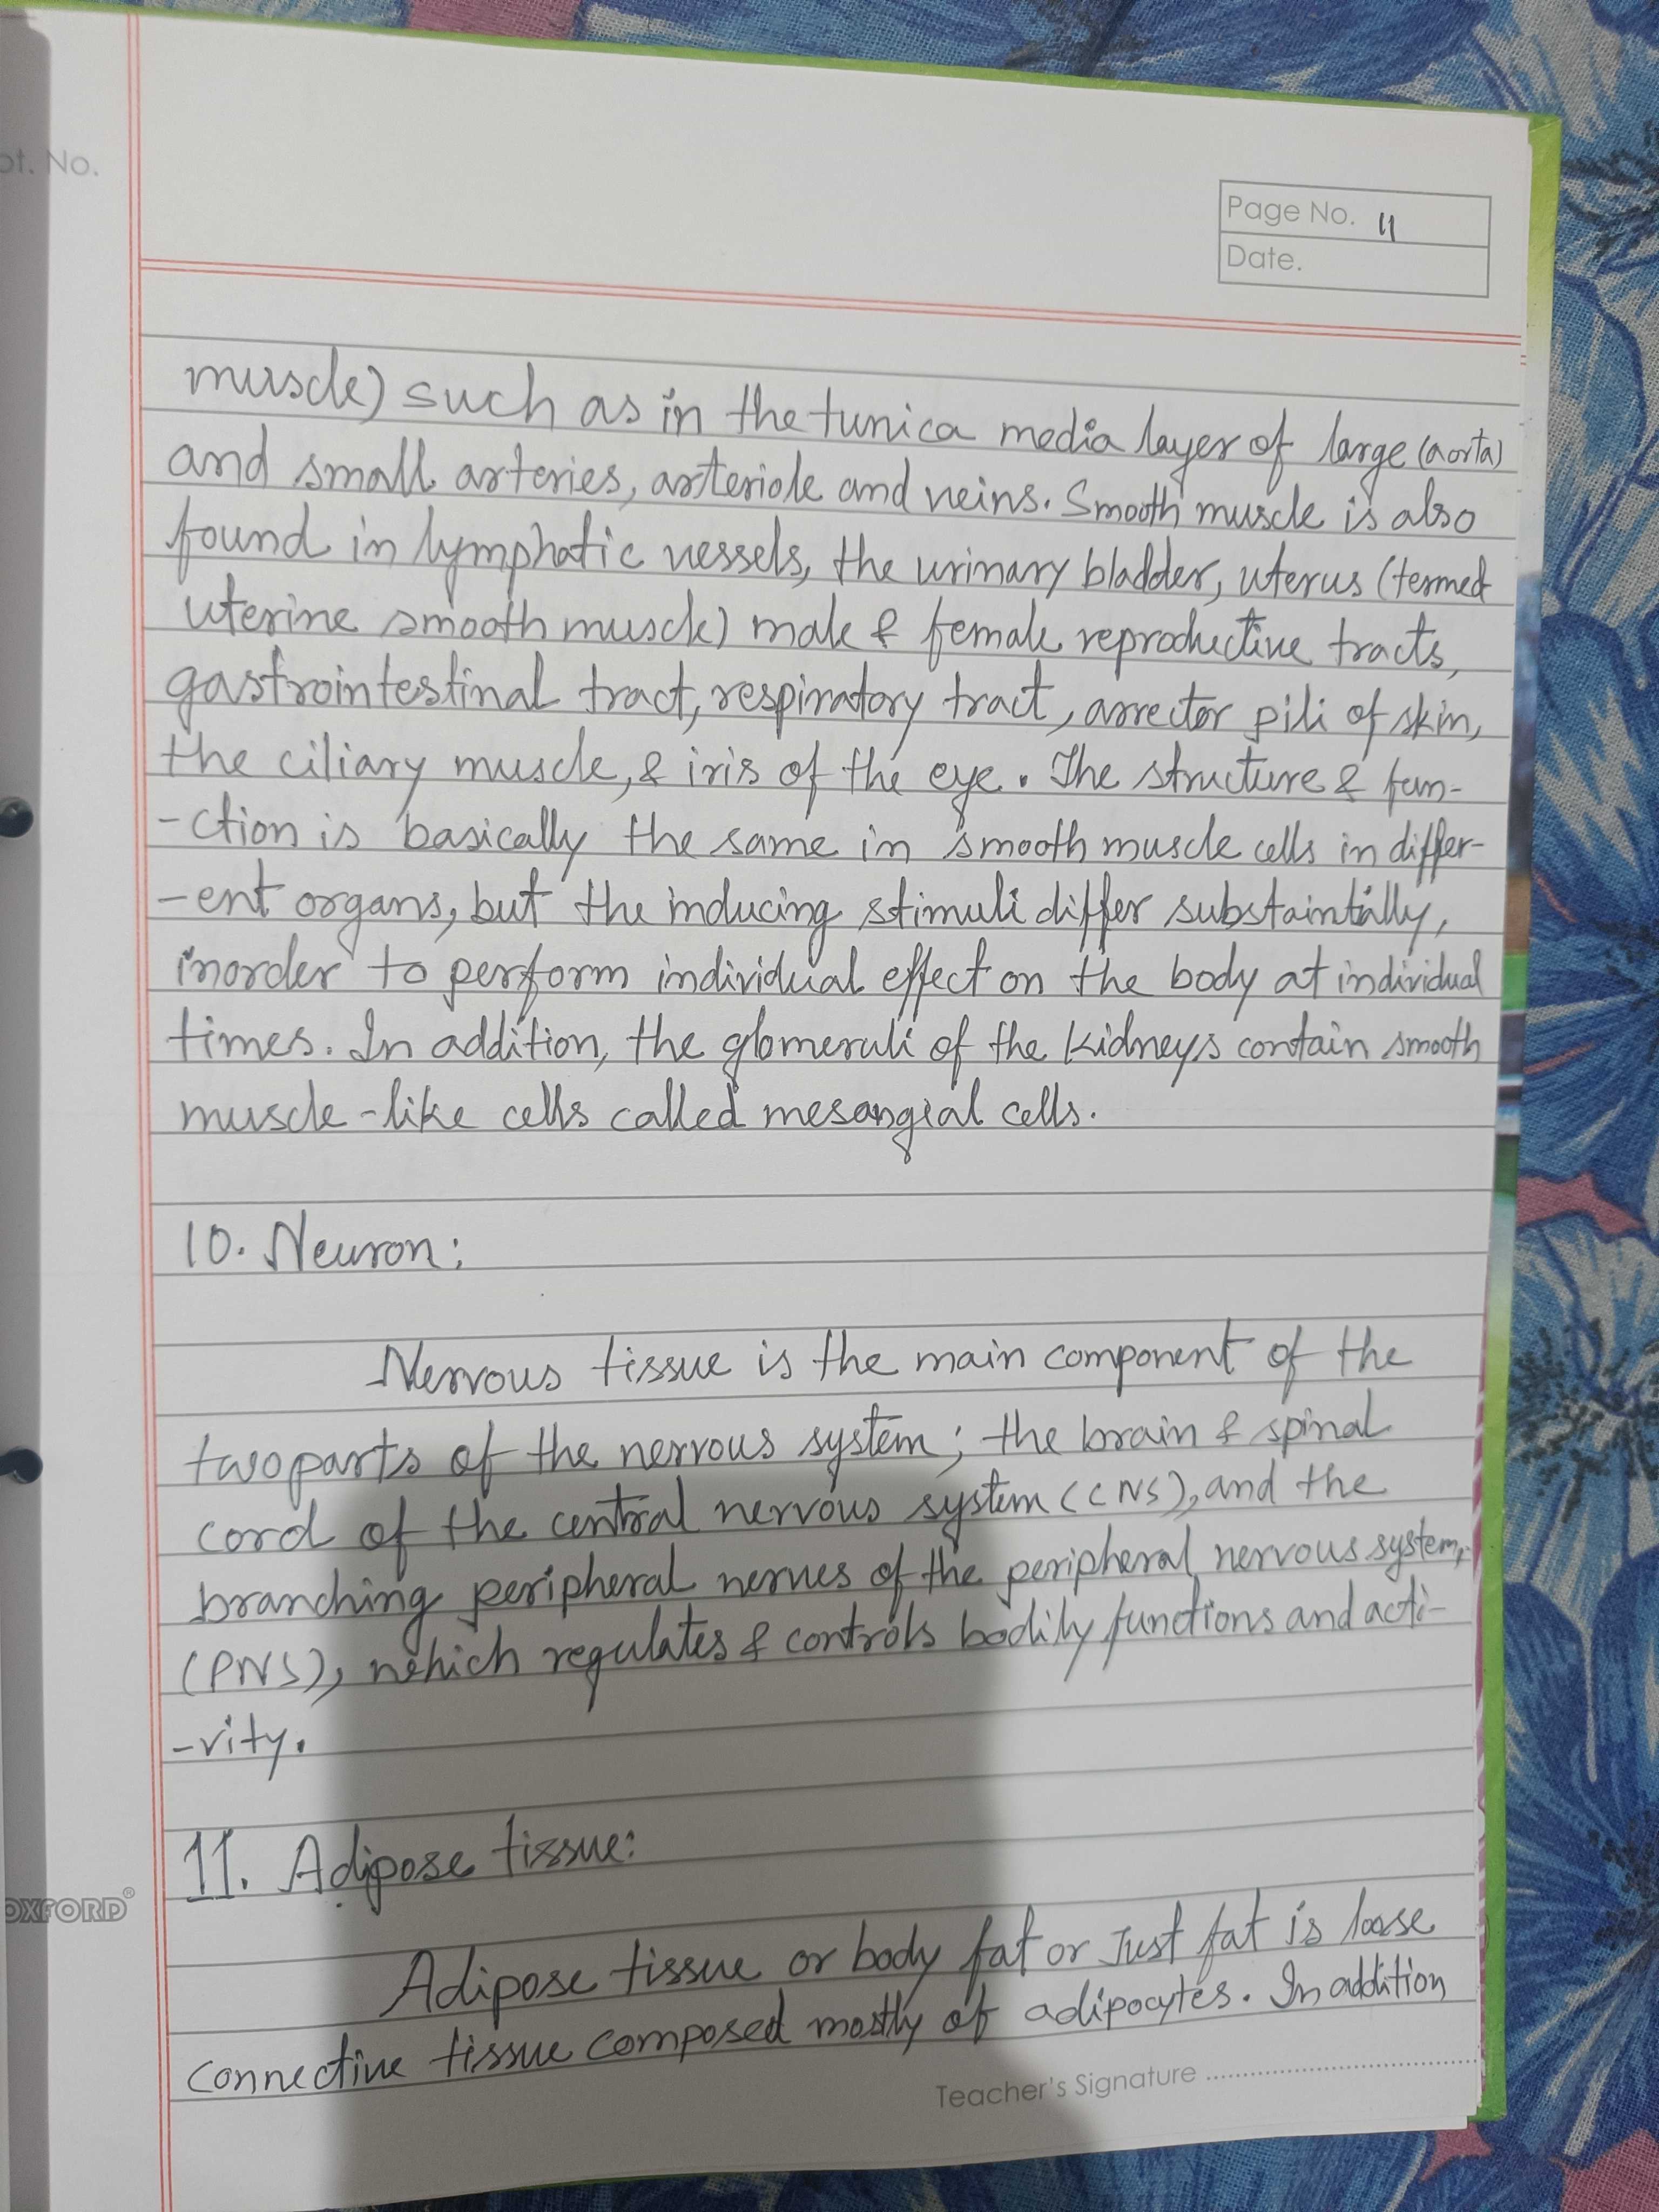 pt. No.
Page No. 11
Date.
muscle) such as in the tunica media layer of large (aorta)
and small arteries, arteriole and veins. Smooth muscle is also
found in lymphatic vessels, the urinary bladder, uterus (termed
uterine smooth muscle) male & female reproductive tracts,
gastrointestinal tract, respiratory tract, arrector pili of skin,
the ciliary muscle, & iris of the eye. The structure & fun-
-ction is basically the same in smooth muscle cells in differ-
-ent organs, but the inducing stimuli differ substaintially,
inorder to perform individual effect on the body at individual
times. In addition, the glomeruli of the kidneys contain smooth
muscle-like cells called mesangial cells.
10. Neuron:
Nervous tissue is the main component of the
two parts of the nervous system; the brain & spinal
cord of the central nervous system (CNS), and the
branching peripheral nerves of the peripheral nervous system,
(PNS), which regulates & controls bodily functions and acti-
-vity.
11. Adipose tissue:
Adipose tissue or body fat or Just fat is loose
connective tissue composed mostly of adipocytes. In addition
OXFORD®
Teacher's Signature ........................